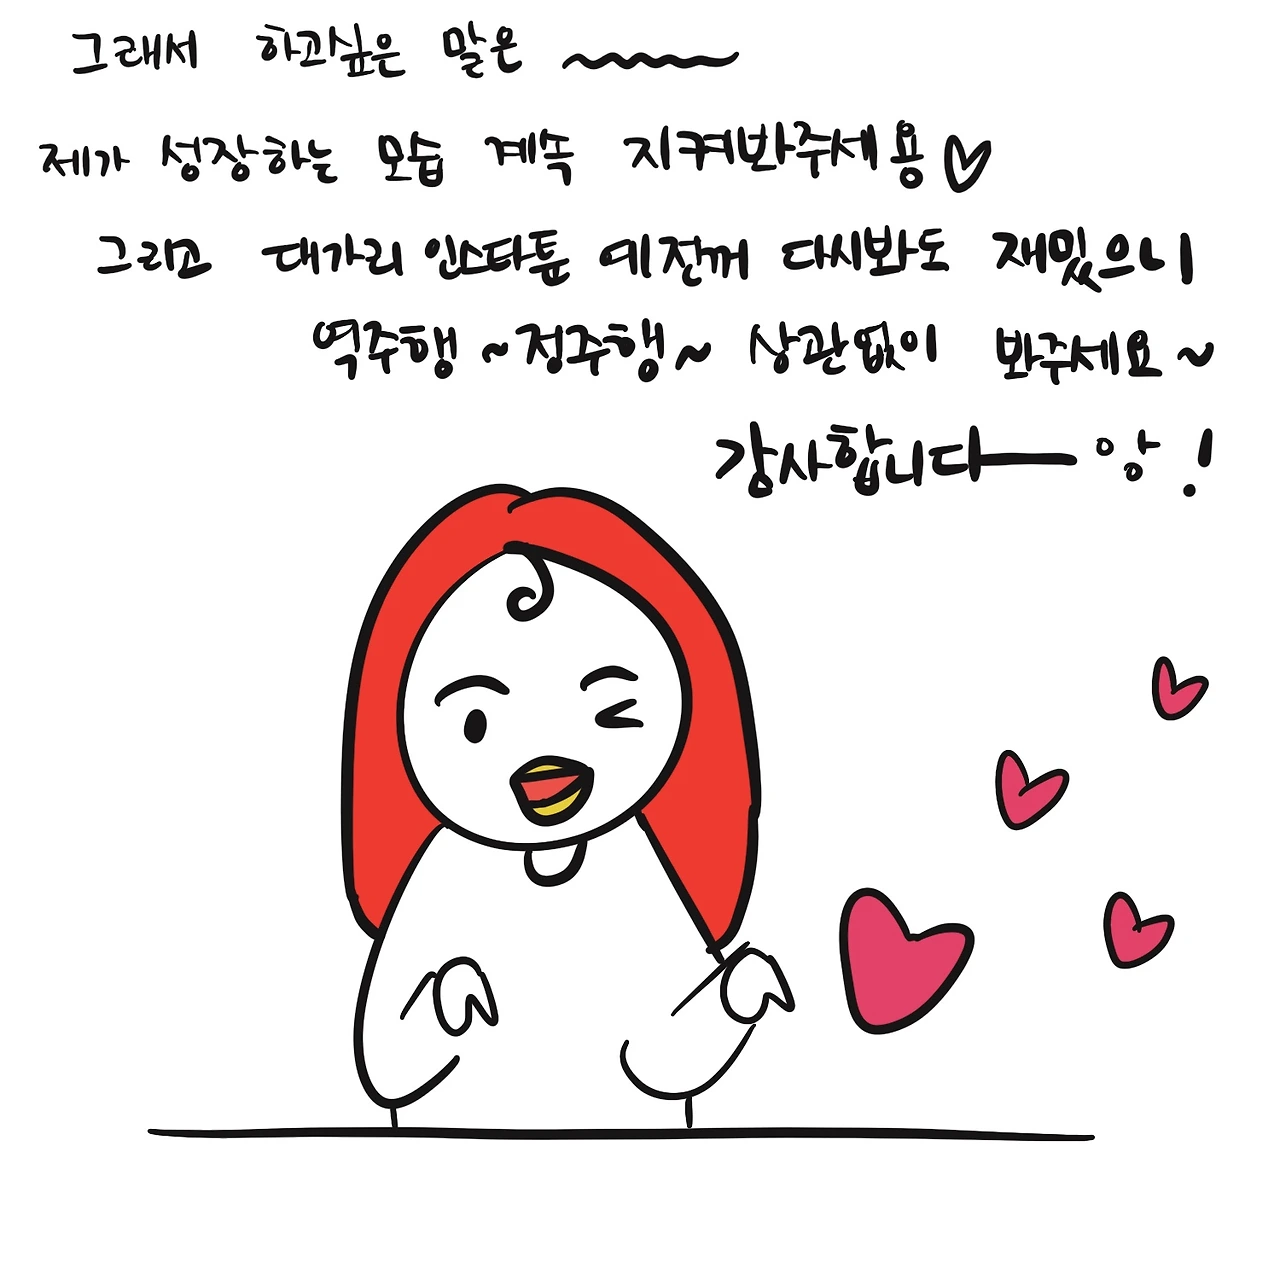 그래서 하고싶은 말은 ~~~~~
제가 성장하는 모습 계속 지켜봐주세용♡
그리고 대가리 인스타툰 예전꺼 다시봐도 재밌으니
역주행~정주행~ 상관없이 봐주세요~
감사합니다── 앙!